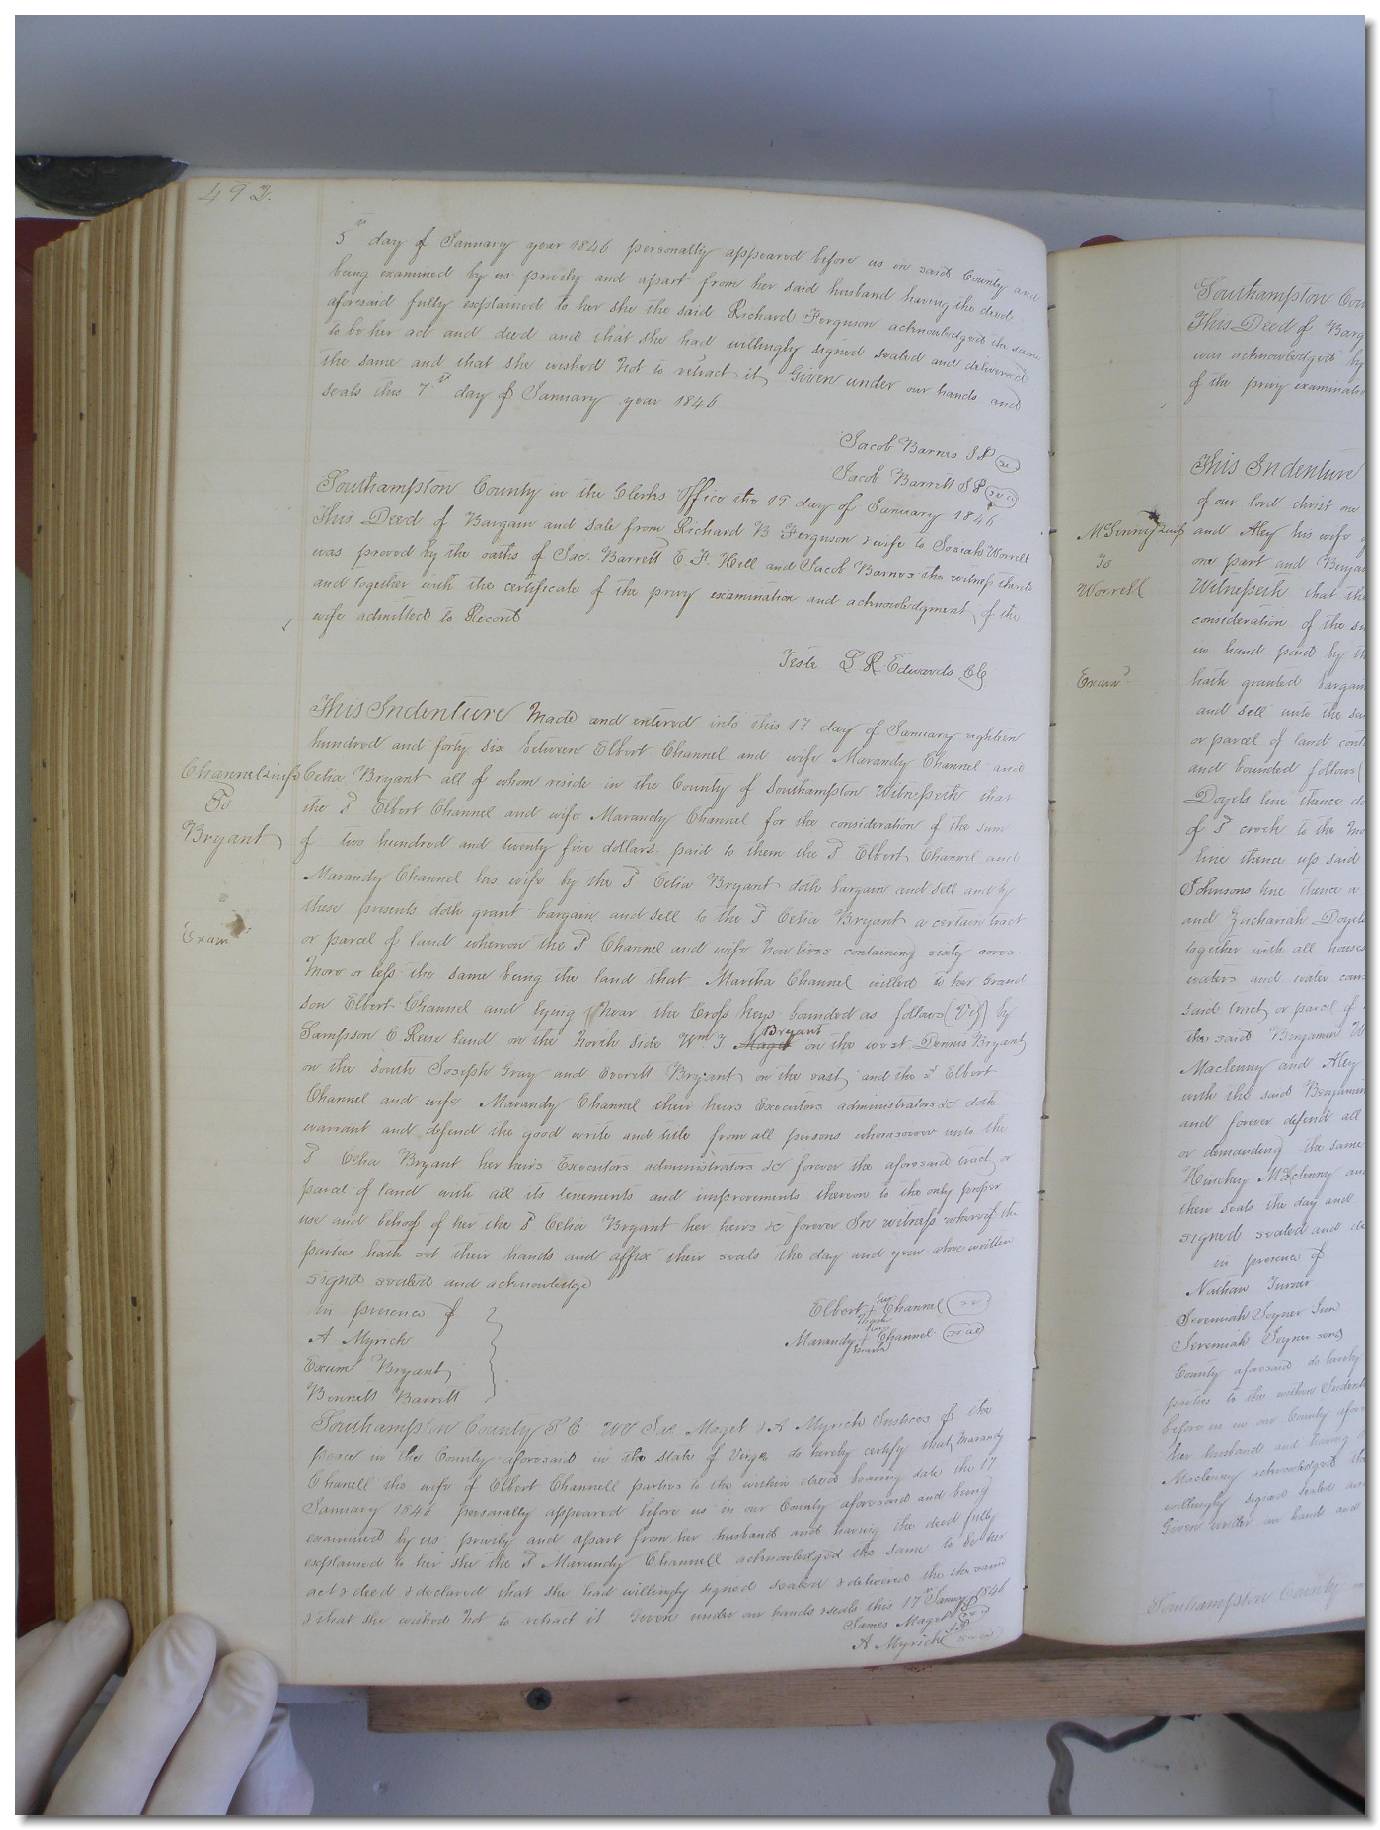 492.
5th day of January year 1846 personally appeared before us in said County and
being examined by us privily and apart from her said husband having the deed
aforesaid fully explained to her she the said Richard Ferguson acknowledged the same
to be her act and deed and that she had willingly signed sealed and delivered
the same and that she wished not to retract it Given under our hands and
seals this 7th day of January year 1846
Jacob Barnes J P
Jacob Barrett J P
Southampton County in the Clerks Office the 19 day of January 1846
This Deed of Bargain and sale from Richard B Ferguson & wife to Josiah Worrell
was proved by the oaths of Jac. Barrett E. F. Hill and Jacob Barnes the witness thereto
and together with the certificate of the privy examination and acknowledgment of the
wife admitted to Record
Teste L R Edwards CC
Channel & wife
To
Bryant
Exam
This Indenture Made and entered into this 17 day of January eighteen
hundred and forty six between Elbert Channel and wife Marandy Channel and
Celia Bryant all of whom reside in the County of Southampton Witnesseth that
the Sd Elbert Channel and wife Marandy Channel for the consideration of the sum
of two hundred and twenty five dollars paid to them the Sd Elbert Channel and
Marandy Channel his wife by the Sd Celia Bryant doth bargain and sell and by
these presents doth grant bargain and sell to the Sd Celia Bryant a certain tract
or parcel of land whereon the Sd Channel and wife now lives containing sixty acres
more or less the same being the land that Martha Channel willed to her Grand
son Elbert Channel and lying near the Cross keys bounded as follows (Viz) by
Sampson C Reese land on the North side Wm J Bryant on the west Dennis Bryant
on the South Joseph Gray and Everett Bryant on the east and the sd Elbert
Channel and wife Marandy Channel their heirs Executors administrators &c doth
warrant and defend the good write and title from all persons whomsoever unto the
Sd Celia Bryant her heirs Executors administrators &c forever the aforesaid tract or
parcel of land with all its tenements and improvements thereon to the only proper
use and behoof of her the Sd Celia Bryant her heirs &c forever In witness whereof the
parties hath set their hands and affix their seals the day and year above written
signed sealed and acknowledge
in presence of
A Myrick
Exum Bryant
Bennett Barrett
Elbert + Channel
Marandy + Channel seal
Southampton County S C We Jas Maget & A Myrick Justices of the
peace in the County aforesaid in the State of Virga do hereby certify that Marandy
Chanell the wife of Elbert Channell parties to the within deed bearing date the 17
January 1846 personally appeared before us in our County aforesaid and being
examined by us privily and apart from her husband and having the deed fully
explained to her she the Sd Marandy Channell acknowledged the same to be her
act & deed & declared that she had willingly signed sealed & delivered the the same
& that she wished not to retract it Given under our hands & seals this 17th January 1846
James Maget JP
A Myrick JP
McLenny & wife
To
Worrell
Exam
Southampton Coun
This Deed of Barg
was acknowledged by
of the privy examinatio
This Indenture
of our lord christ one
and Aley his wife of
one part and Benja
Witnesseth that the
consideration of the su
in hand paid by th
hath granted bargain
and sell unto the sa
or parcel of land cont
and bounded follows
Doyels line thence do
of Sd creek to the mo
line thence up said
Johnsons line thence a
and Zachariah Doyel
together with all houses
waters and water cour
said land or parcel of
the said Benjamin W
Maclenny and Aley
with the said Benjamin
and forever defend all
or demanding the same
Hinchay McLenny and
their seals the day and
signed sealed and de
in presence of
Nathan Turner
Jeremiah Joyner Sen
Jeremiah Joyner
County aforesaid do hereby
parties to the within Indent
before us in our County afor
her husband and having
Maclenny acknowledged the
willingly signed sealed and
Given under our hands and
Southampton County